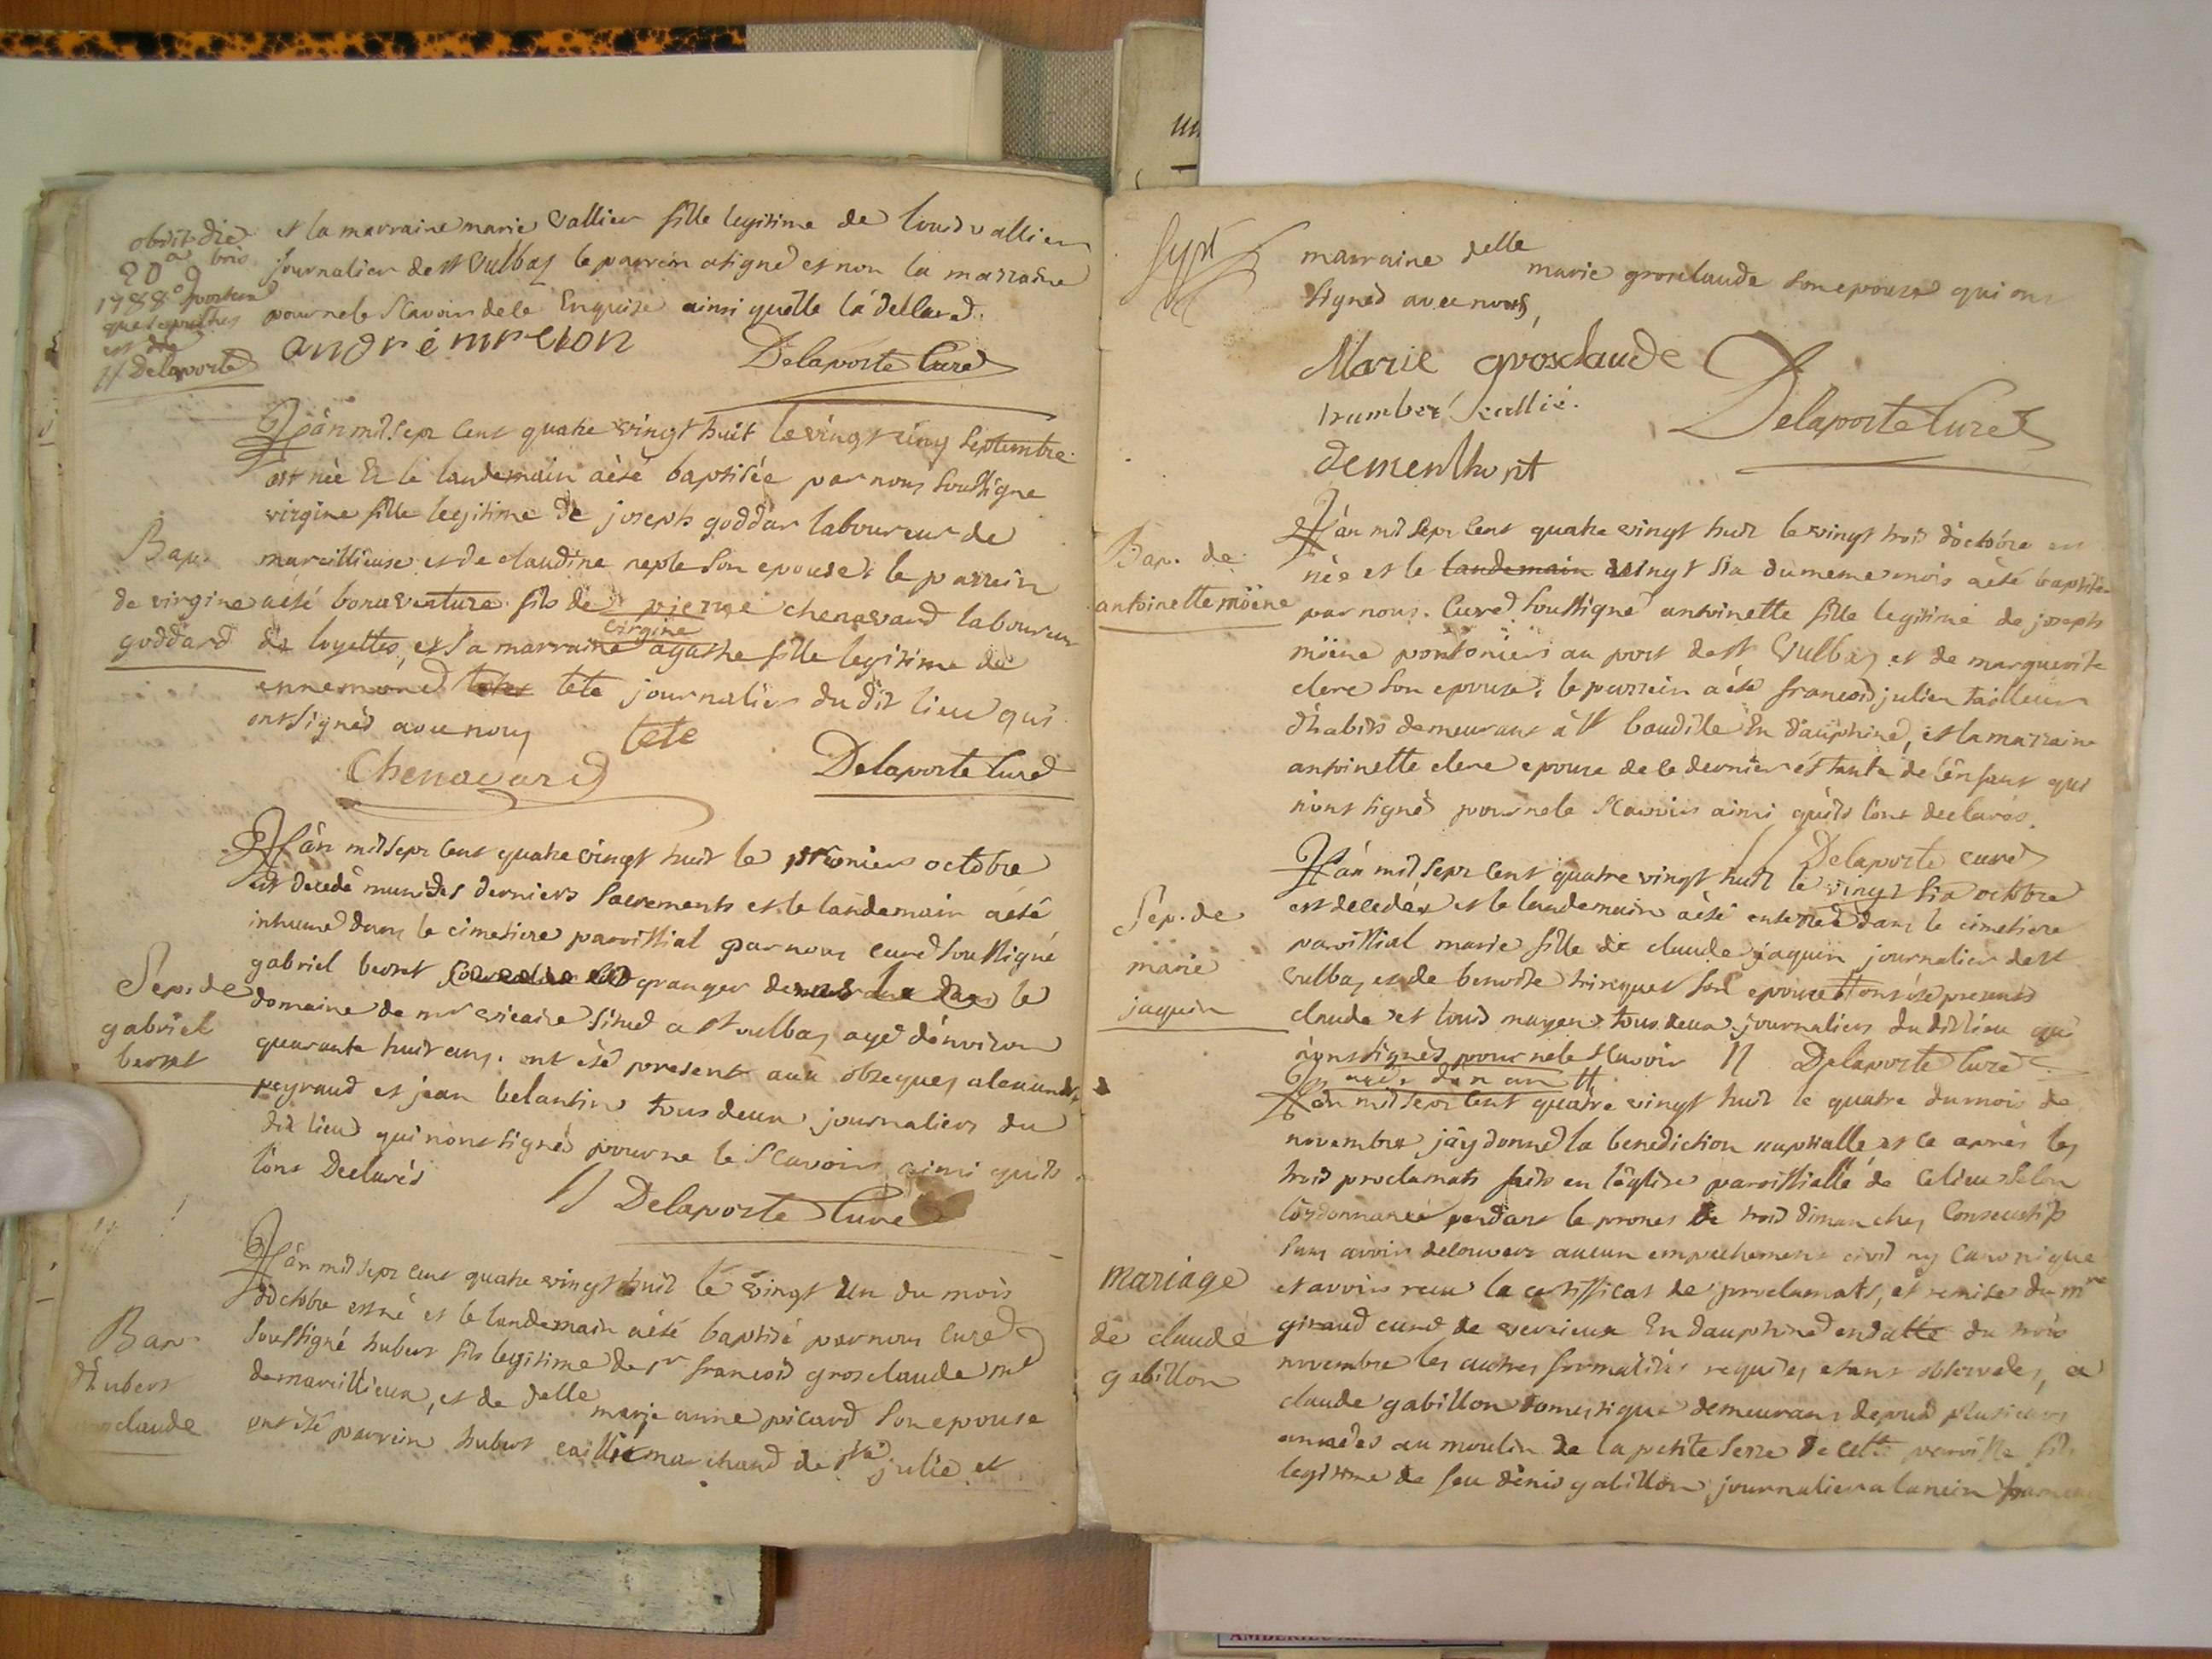 obiit die
20a 9bris
1788
est
// Delaporte
et la marraine marie vallier fille legitime de Louis vallier
journalier de st vulbas le parrein a signé et non la marraine
pour ne le Scavoir de ce Enquise ainsi quelle la dellaré.
andré mreton
Delaporte Curé
Lân mil sept cent quatre vingt huit le vingt cinq Septembre
est née Et le landemain aèté baptisée par nous soussigné
virgine fille legitime de joseph goddar laboureur de
Bap.
de virgine
goddard
marcillieuse et de claudine reple son epouse le parrein
aèté bonaventure fils de pierre chenavard laboureur
de loyettes, et sa marraine virgine agathe fille legitime de
ennemond tete journalier du dit lieu qui
ont signés avec nous
tete
Chenavard
Delaporte Curé
Lân mil sept cent quatre vingt huit le premier octobre
est decedé muni des derniers Sacrements et le landemain aèté
inhumé dans le cimetiere parroissial par nous curé soussigné
Sep. de
gabriel
berret
gabriel berret granger le
domaine de mr vicaire situé a st vulbas agé dênviron
quarante huit ans. ont èté present aux obseques alexandre
peyraud et jean belantin tous deux journaliers du
dit lieu qui nont signés pour ne le Scavoir ainsi quils
lônt Declarés
// Delaporte Curé
Lân mil sept cent quatre vingt huit le vingt un du mois
Bap.
dhubert
claude
dôctobre est né et le landemain aèté baptisé par nous Curé
soussigné hubert fils legitime de sr francois grosclaude md
demarcillieux, et de delle marie anne picard Son epouse
ont èté parrein hubert caillié marchand de ste julie et
Sept
marraine delle marie grosclaude son epouse qui ont
signés avec nous,
Marie grosclaude
humbert caillié.
dementhont
Delaporte Curé
Bap. de
antoinette möene
Lân mil sept cent quatre vingt huit le vingt trois dôctobre est
née et le landemain vingt six du meme mois aèté baptisée
par nous Curé soussigné antoinette fille legitime de joseph
möene pontonier au port de st vulbas et de marguerite
clere son epouse, le parrein aèté francois julien tailleur
dhabits demeurant a st baudille En dauphiné, et la marraine
antoinette clere epouse de ce dernier et tante de lênfant qui
nont signés pour ne le Scavoir ainsi quils lônt declarés.
// Delaporte curé
Sep. de
marie
jaquin
Lân mil sept cent quatre vingt huit le vingt six octobre
est decedée et le landemain aèté enterrée dans le cimetiere
parroissial marie fille de claude jaquin journalier de st
vulbas et de benoite son epouse ont èté presents
claude et louis mayen tous deux journaliers du dit lieu qui
nônt signés pour ne le Scavoir // Delaporte Curé
agée dun an //
Lân mil sept cent quatre vingt huit le quatre du mois de
novembre jây donné la benediction nuptialle et ce après les
trois proclamats faits en lêglise parroissialle de Ce lieu selon
lôrdonnance pendant le prones de trois dimanches Consecutifs
sans avoir decouvert aucun empechement civil ny Canonique
mariage
de claude
gabillon
et avoir recu la certifficat de proclamats, et remise de mre
giraud curé de vercieux En dauphiné endatte du trois
novembre les autres formalités requises etant observées, a
claude gabillon domestique demeurant depuis plusieurs
années au moulin de la petite Serre de cette parroisse fils
legitime de feu dénis gabillon journalier a lancin